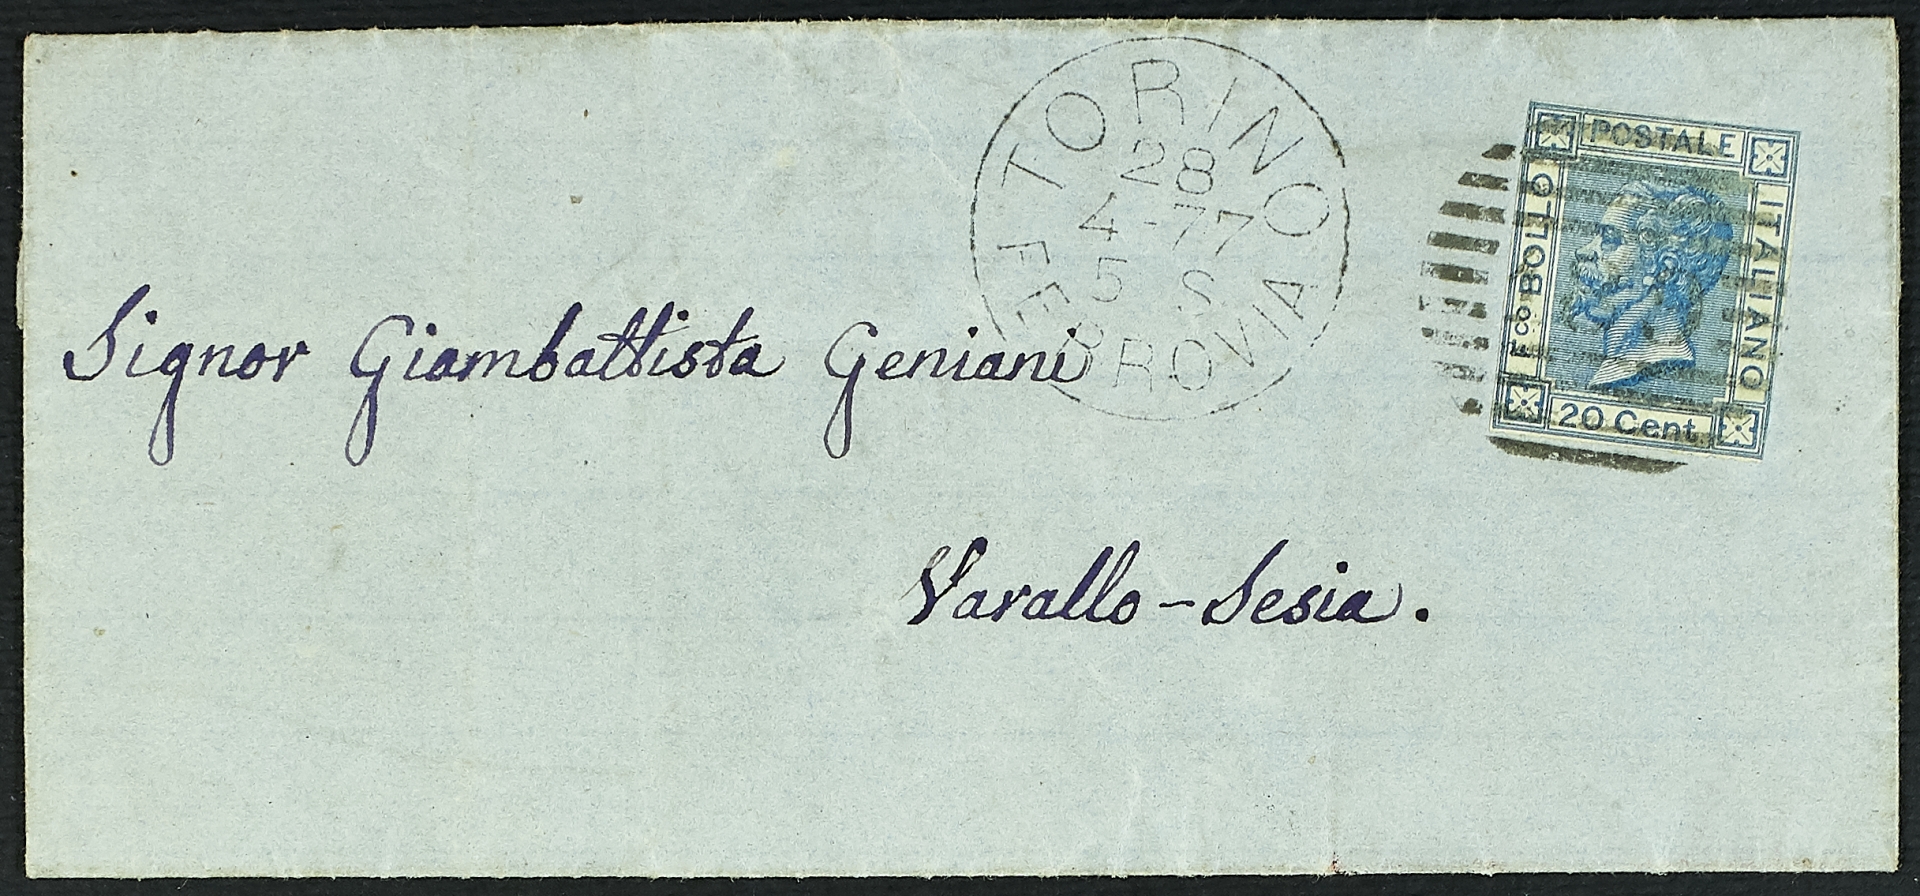 TORINO
28
4-77
5 S
FERROVIA
POSTALE
ITALIANO
Fco BOLLO
20 Cent
Signor Giambattista Geniani
Varallo-Sesia.